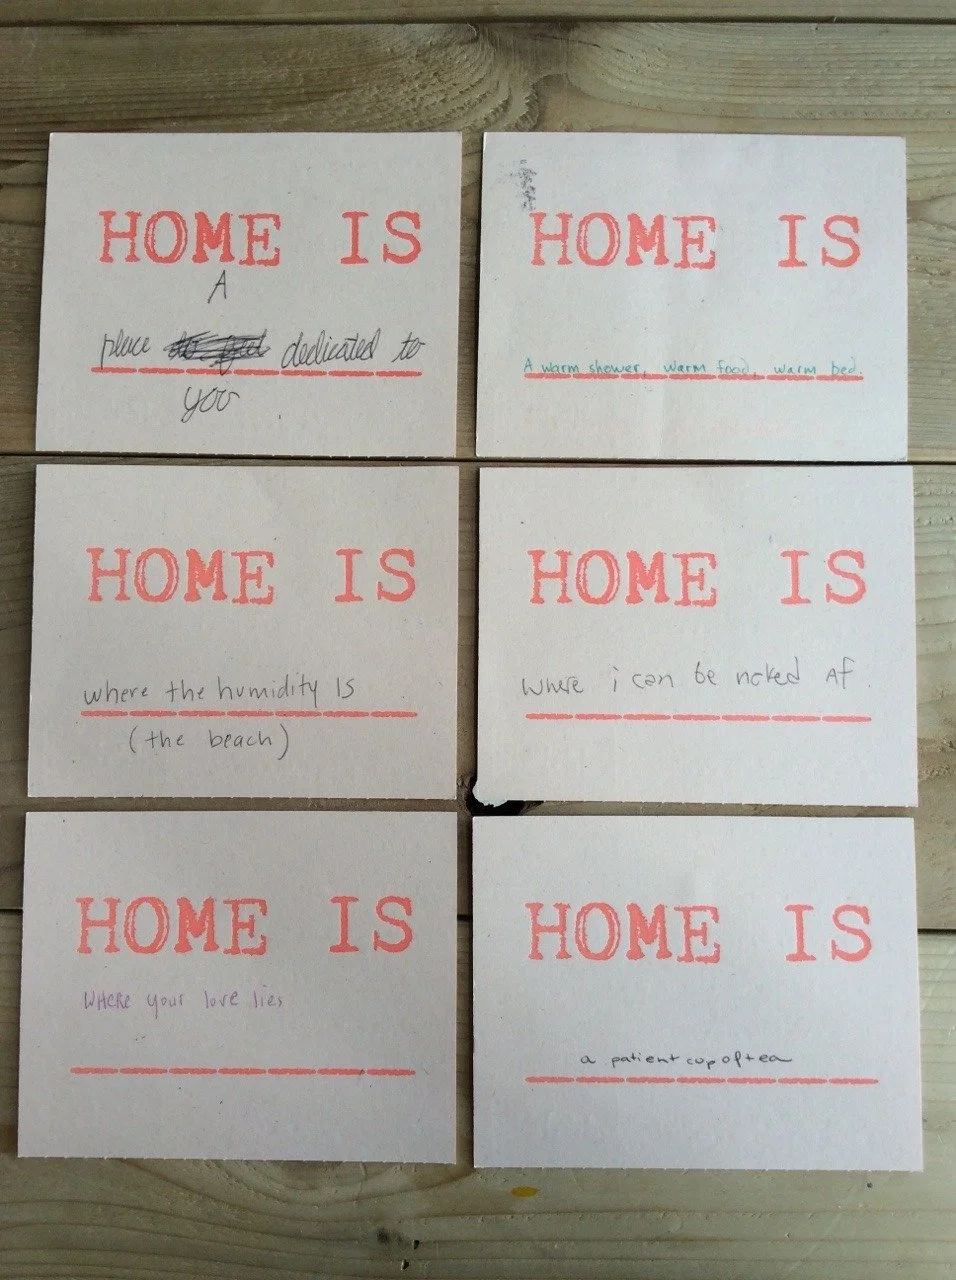 HOME IS
A
place dedicated to
you
HOME IS
A warm shower, warm food, warm bed.
HOME IS
where the humidity is
(the beach)
HOME IS
where i can be naked AF
HOME IS
WHeRe your love lies
HOME IS
a patient cup of tea